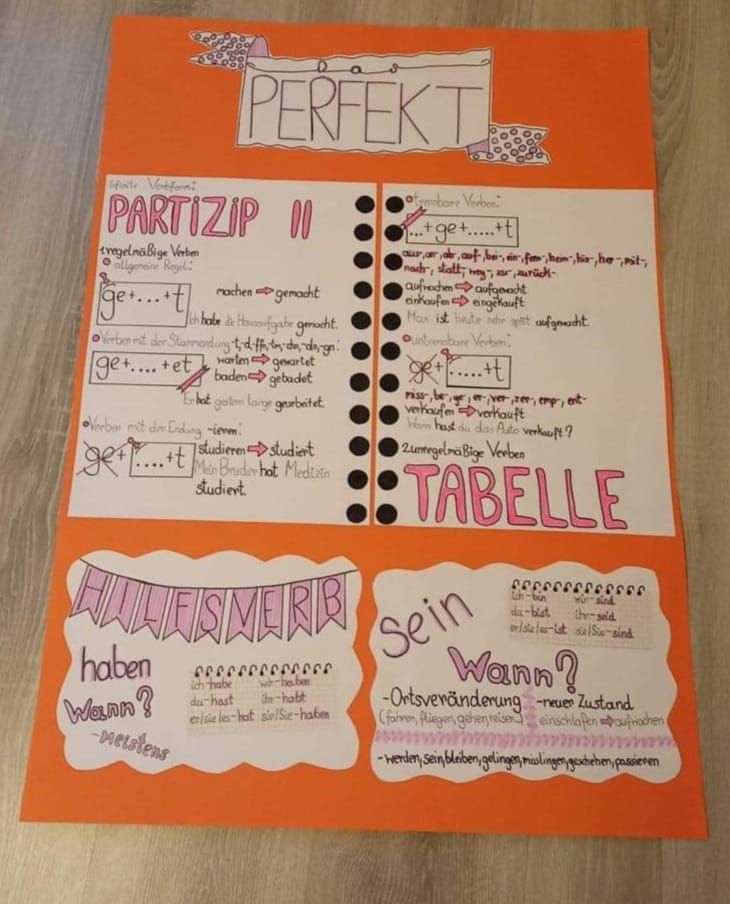 Das
PERFEKT
infinite Verbform:
PARTIZIP II
1.regelmäßige Verben
allgemeine Regel:
ge+...+t
machen ⇒ gemacht
Ich habe die Hausaufgabe gemacht.
Verben mit der Stammendung -t,-d,-ffn,-tm,-chn,-dn,-gn:
ge+....+et
warten ⇒ gewartet
baden ⇒ gebadet
Er hat gestern lange gearbeitet.
Verben mit der Endung -ieren:
ge+ ....+t
studieren ⇒ studiert
Mein Bruder hat Medizin
studiert.
trennbare Verben:
...+ge+.....+t
aus-, an-, ab-, auf-, bei-, ein-, fern-, heim-, hin-, her-, mit-,
nach-, statt-, weg-, zu-, zurück-
aufwachen ⇒ aufgewacht
einkaufen ⇒ eingekauft
Max ist heute sehr spät aufgewacht.
untrennbare Verben:
ge+ .....+t
miss-, be-, ge-, er-, ver-, zer-, emp-, ent-
verkaufen ⇒ verkauft
Wann hast du das Auto verkauft?
2.unregelmäßige Verben
TABELLE
HILFSVERB
haben
Wann?
-Meistens
ich-habe wir-haben
du-hast ihr-habt
er/sie/es-hat sie/Sie-haben
sein
ich-bin wir-sind
du-bist ihr-seid
er/sie/es-ist sie/Sie-sind
Wann?
-Ortsveränderung -neuer Zustand
(fahren, fliegen, gehen, reisen...) einschlafen ⇒ aufwachen
-werden, sein, bleiben, gelingen, misslingen, geschehen, passieren